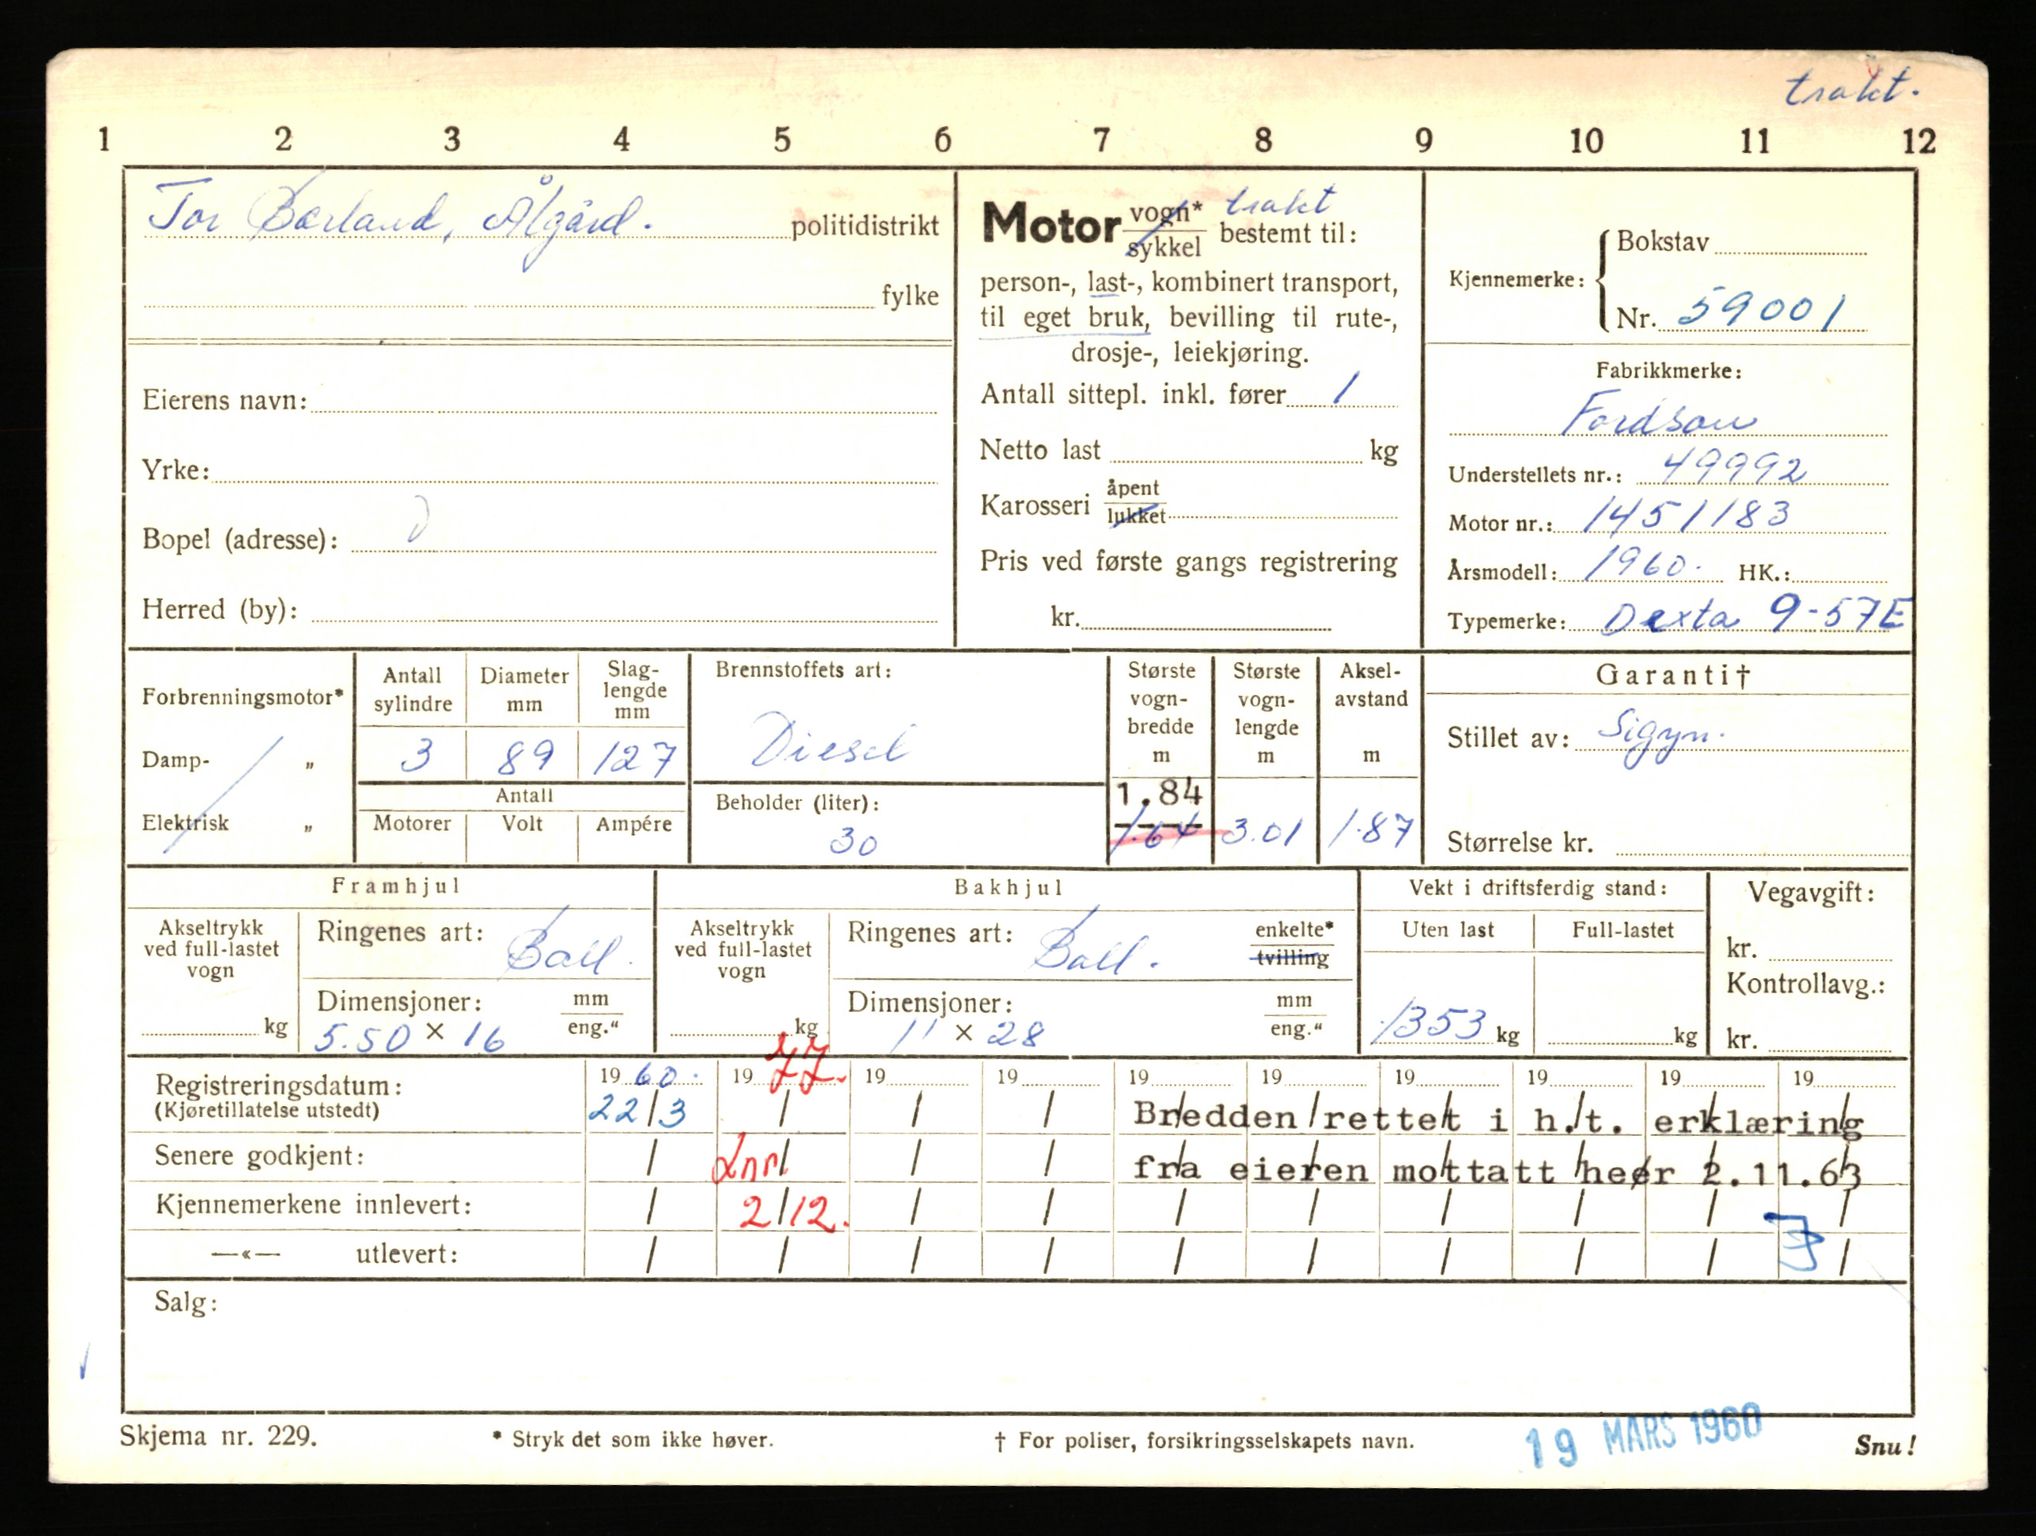 trakt.
1 2 3 4 5 6 7 8 9 10 11 12
Tor Bærland, Ålgård. politidistrikt
fylke
Eierens navn:
Yrke:
Bopel (adresse):
Herred (by):
Motor vogn* trakt
sykkel bestemt til:
person-, last-, kombinert transport,
til eget bruk, bevilling til rute-,
drosje-, leiekjøring.
Antall sittepl. inkl. fører 1
Netto last kg
Karosseri åpent
lukket
Pris ved første gangs registrering
kr.
Kjennemerke: Bokstav
Nr. 59001
Fabrikkmerke:
Fordson
Understellets nr.: 49992
Motor nr.: 1451183
Årsmodell: 1960. HK.:
Typemerke: Dexta 9-57E
Forbrenningsmotor*
Damp- „
Elektrisk „
Antall sylindre Diameter mm Slag-lengde mm
3 89 127
Antall
Motorer Volt Ampére
Brennstoffets art:
Diesel
Beholder (liter):
30
Største vogn-bredde m
1.84
1.64
Største vogn-lengde m
3.01
Aksel-avstand m
1.87
Garanti†
Stillet av: Sigyn.
Størrelse kr.
Framhjul
Akseltrykk ved full-lastet vogn
kg
Ringenes art: Ball.
Dimensjoner: mm
5.50 × 16 eng."
Bakhjul
Akseltrykk ved full-lastet vogn
kg
Ringenes art: Ball. enkelte*
tvilling
Dimensjoner: mm
11 × 28 eng."
Vekt i driftsferdig stand:
Uten last Full-lastet
1353 kg kg
Vegavgift:
kr.
Kontrollavg.:
kr.
Registreringsdatum: 1960. 1977. 19 19 19 19 19 19 19 19
(Kjøretillatelse utstedt) 22/3 / / / Bredden rettet i h.t. erklæring
Senere godkjent: / / / / fra eieren mottatt heer 2.11.63
Kjennemerkene innlevert: / 2/12. / / / / / / / /
—«— utlevert: / / / / / / / / / /
Salg:
Skjema nr. 229. * Stryk det som ikke høver. † For poliser, forsikringsselskapets navn. 19 MARS 1960 Snu!